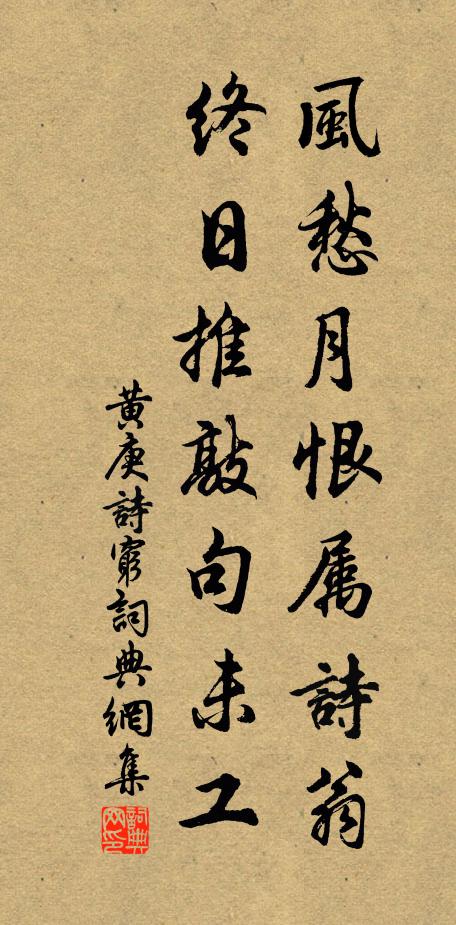 風愁月恨属詩翁
終日推敲句未工
黄庚詩窮詞典網集
詞典网印